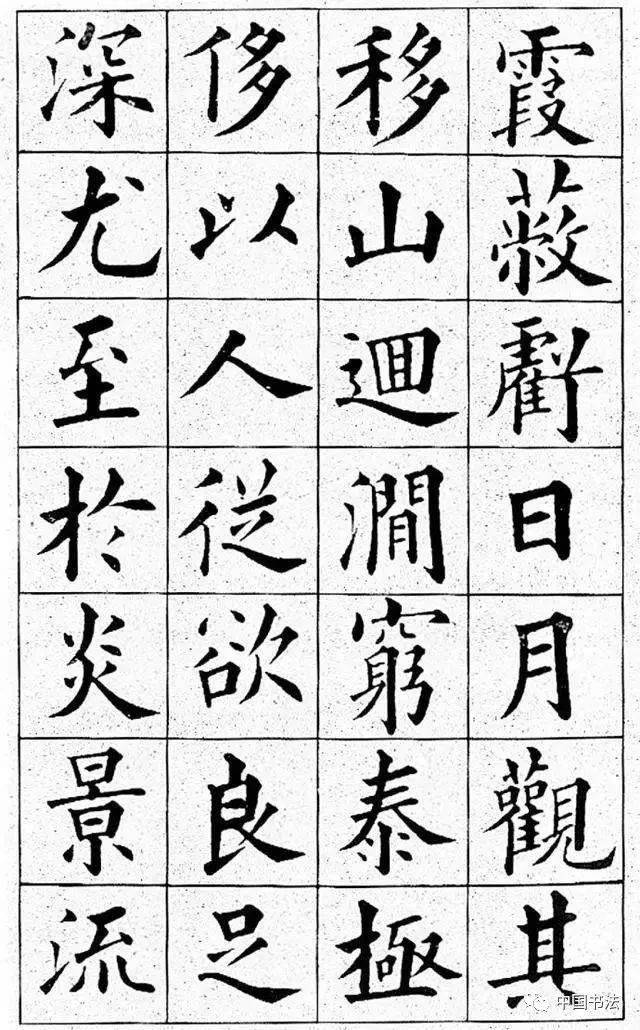 霞蔽虧日月觀其
移山迴澗窮泰極
侈以人從欲良足
深尤至於炎景流
中国书法